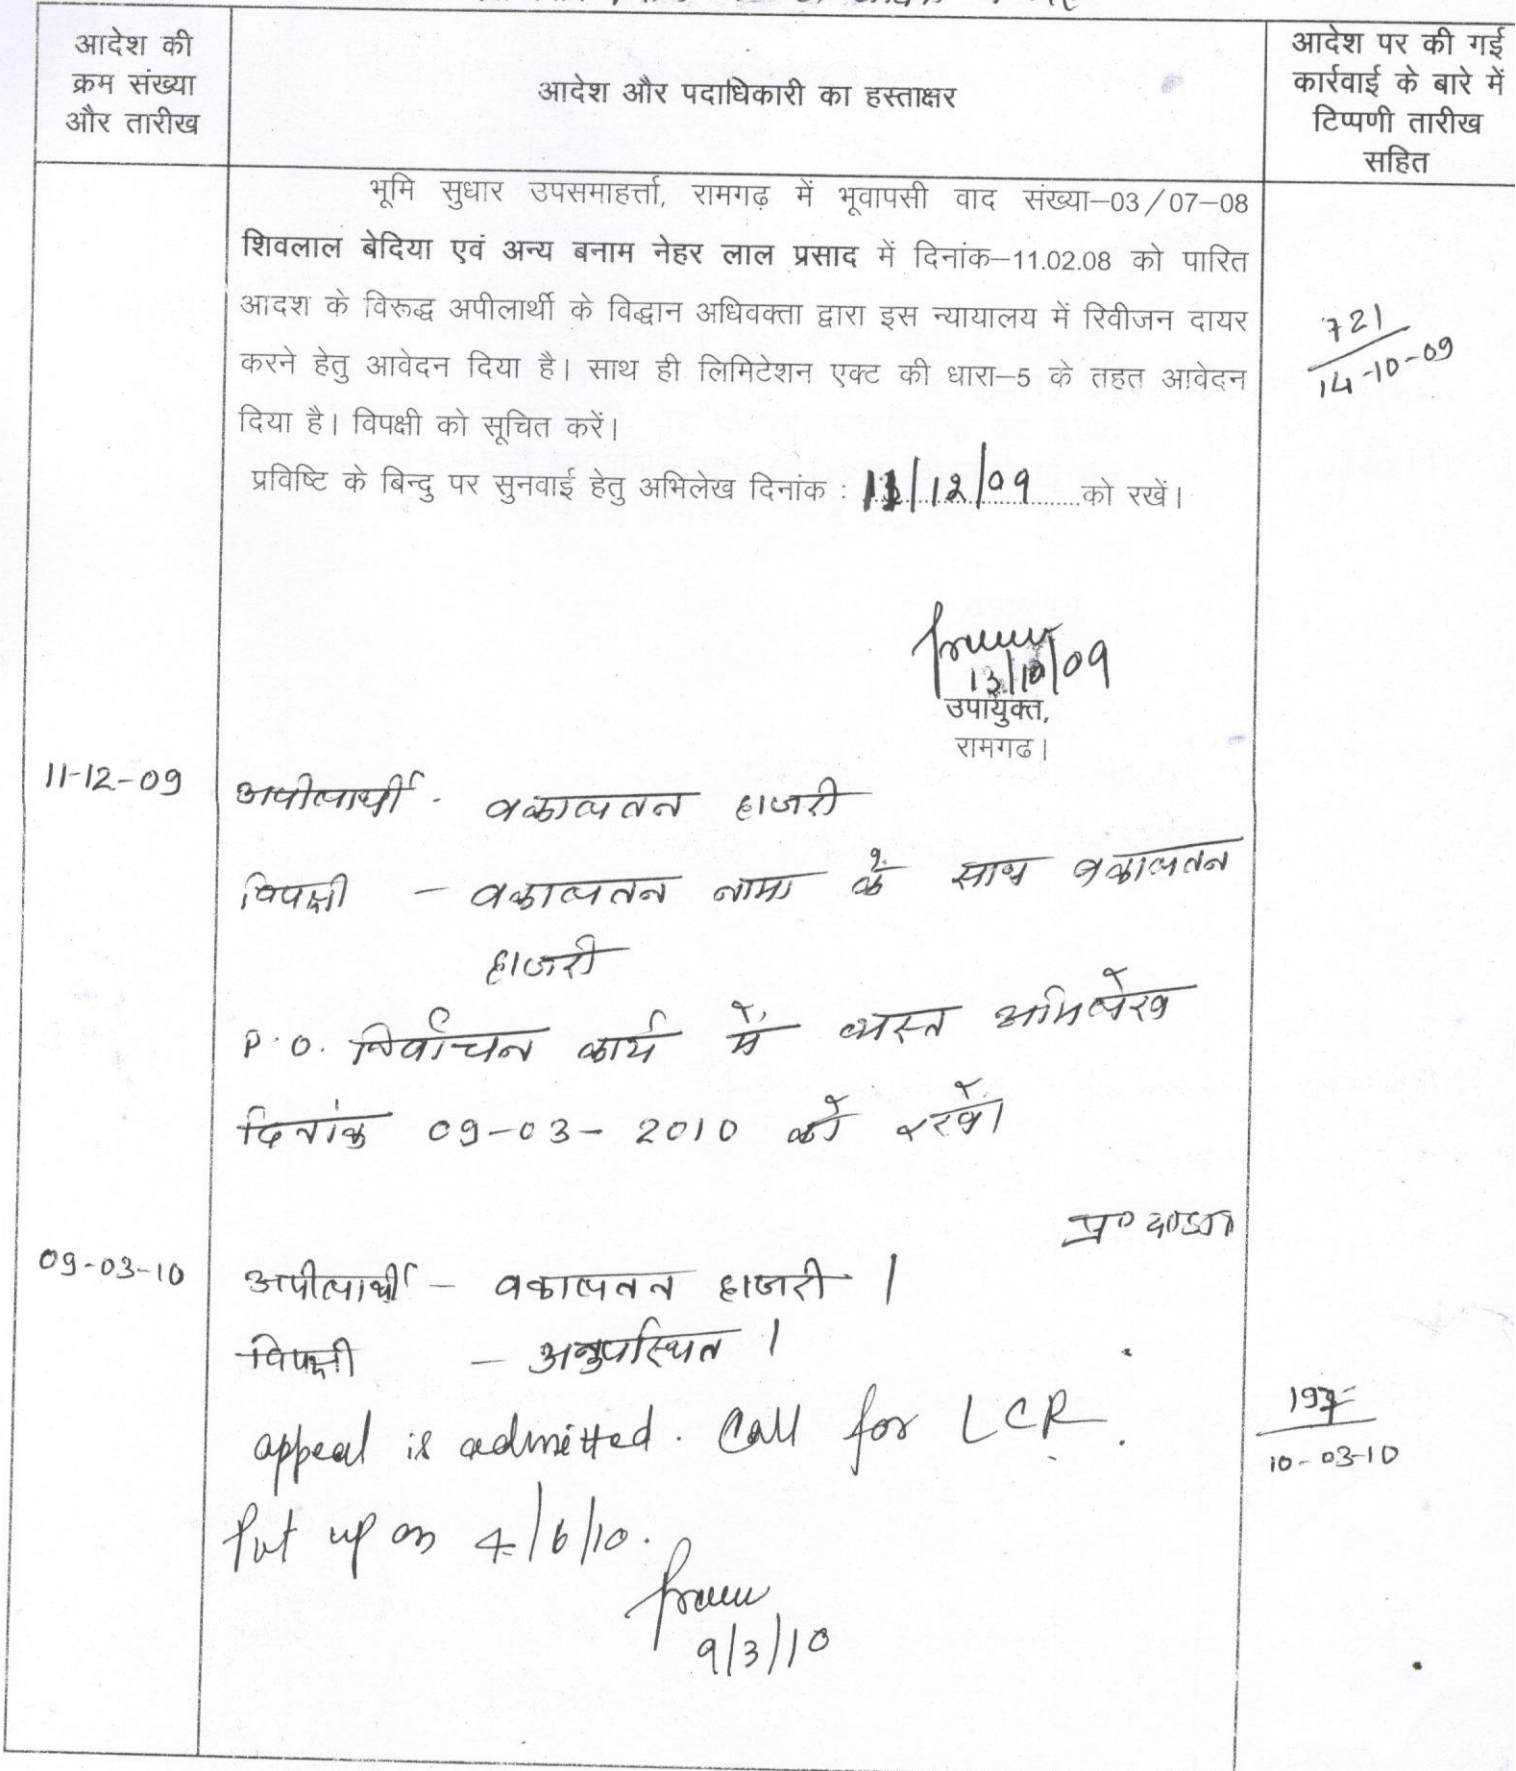 आदेश की
क्रम संख्या
और तारीख
आदेश और पदाधिकारी का हस्ताक्षर
आदेश पर की गई
कार्रवाई के बारे में
टिप्पणी तारीख
सहित
भूमि सुधार उपसमाहर्त्ता, रामगढ़ में भूवापसी वाद संख्या–03/07–08
शिवलाल बेदिया एवं अन्य बनाम नेहर लाल प्रसाद में दिनांक–11.02.08 को पारित
आदश के विरूद्ध अपीलार्थी के विद्वान अधिवक्ता द्वारा इस न्यायालय में रिवीजन दायर
करने हेतु आवेदन दिया है। साथ ही लिमिटेशन एक्ट की धारा–5 के तहत आवेदन
दिया है। विपक्षी को सूचित करें।
721
14-10-09
प्रविष्टि के बिन्दु पर सुनवाई हेतु अभिलेख दिनांक : 11/12/09 को रखें।
13/10/09
उपायुक्त,
रामगढ।
11-12-09
अपीलार्थी - वकालतन हाजरी
विपक्षी – वकालतन नामा के साथ वकालतन
हाजरी
P.O. निर्वाचन कार्य में व्यस्त अभिलेख
दिनांक 09-03-2010 को रखें।
09-03-10
अपीलार्थी – वकालतन हाजरी ।
विपक्षी – अनुपस्थित ।
appeal is admitted. Call for LCR.
197
10-03-10
Put up on 4/6/10.
9/3/10